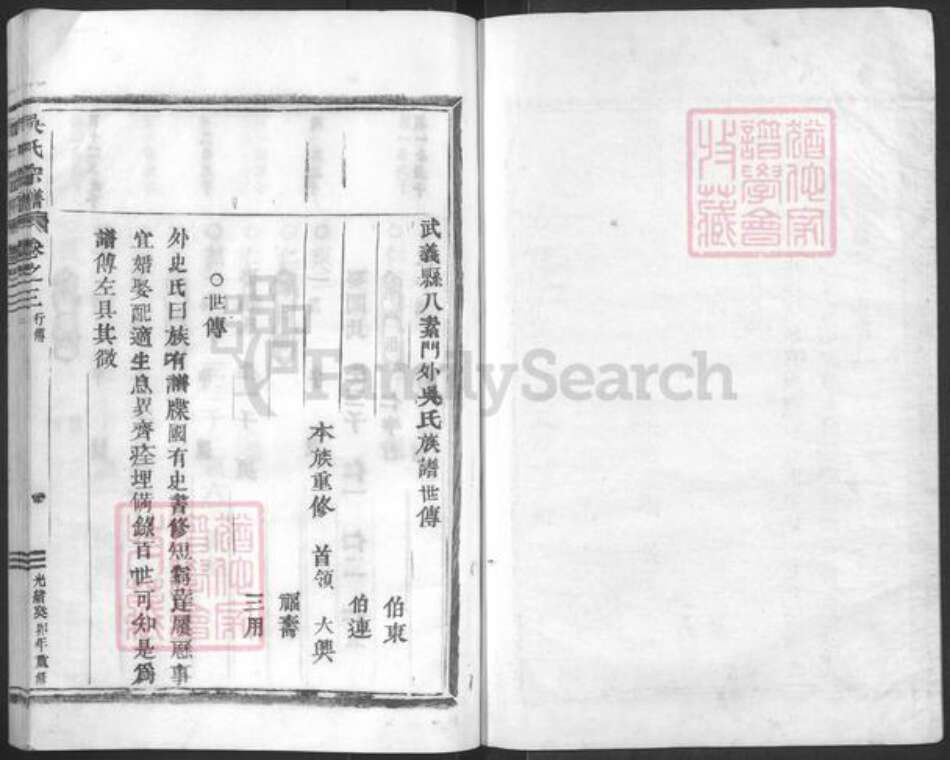 武義縣八素門外吳氏族譜世傳
伯東
伯連
本族重修 首領 大興
福壽
三用
○世傳
外史氏曰族有譜牒國有史書修短窮達履歷事
宜婚娶配適生息異齊瘞埋備錄百世可知是爲
譜傳左具其徵
吳氏宗譜 卷之三 行傳
光緒癸卯年重修
猶他家譜學會收藏
猶他家譜學會收藏
FamilySearch